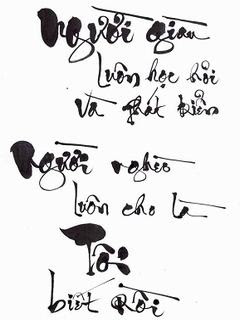 Người giàu
luôn học hỏi
và phát triển
Người nghèo
luôn cho là
Tôi
biết rồi